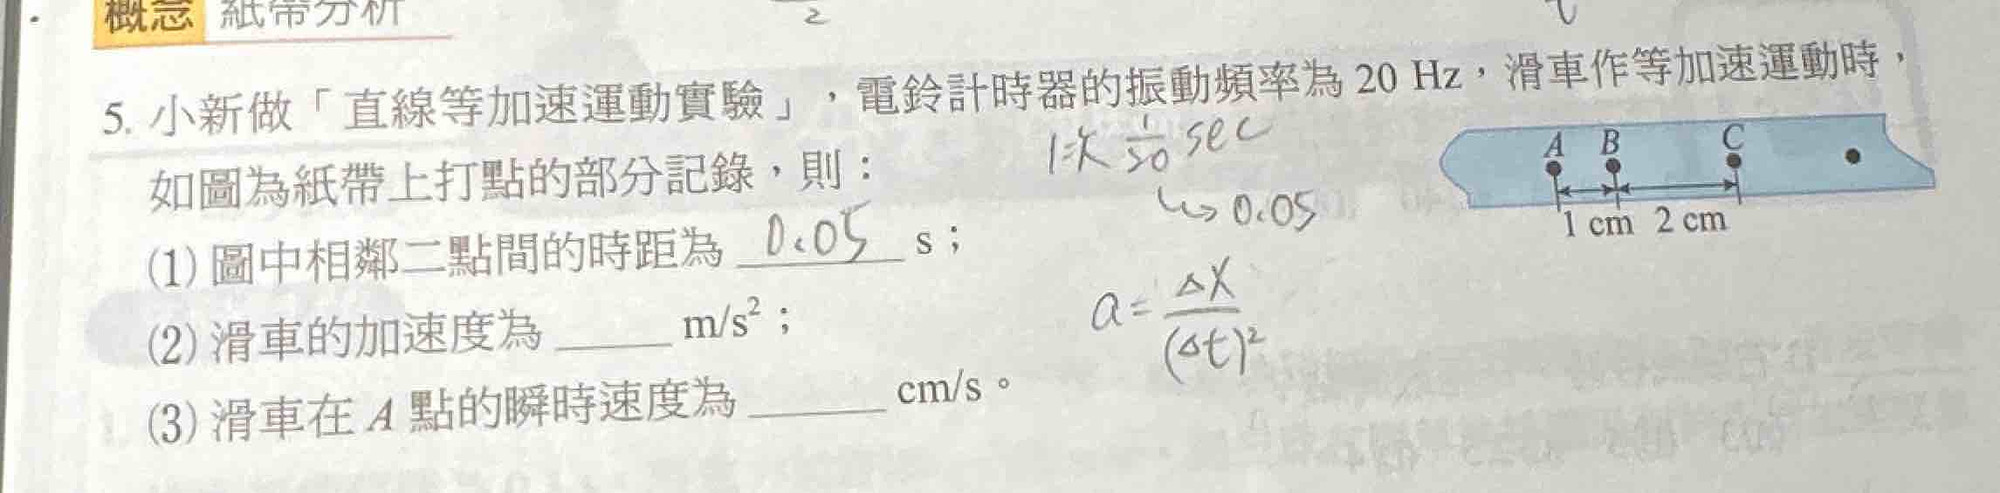 概念 紙帶分析
2
t
5. 小新做「直線等加速運動實驗」，電鈴計時器的振動頻率為 20 Hz，滑車作等加速運動時，
如圖為紙帶上打點的部分記錄，則：
1次 1/20 sec
↳ 0.05
A B C
1 cm 2 cm
(1) 圖中相鄰二點間的時距為 0.05 s；
(2) 滑車的加速度為 ______ m/s²；
a = Δx/(Δt)²
(3) 滑車在 A 點的瞬時速度為 ______ cm/s。